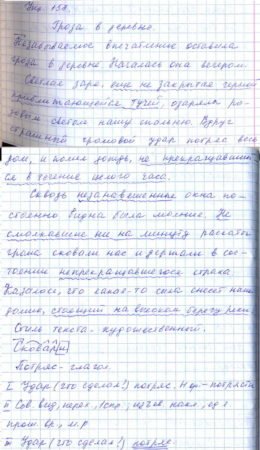 Упр. 158.
Гроза в деревне.
Незабываемое впечатление оставила
гроза в деревне. Она вечером.
Светлая заря, еще не закрытая черной
приближающейся тучей, озаряла ро-
зовым светом нашу спальню. Вдруг
страшный громовой удар потряс весь
дом, и полил дождь, не прекращавший-
ся в течение целого часа.
Сквозь незанавешенные окна по-
стоянно видна была молния. Не
смолкавшие ни на минуту раскаты
грома сковали нас и держали в сос-
тоянии непрекращавшегося страха.
Казалось, что какая-то сила снесет наш
домик, стоящий на высоком берегу реки.
Стиль текста - художественный.
Сковал[и]
Потряс - глагол.
I Удар (что сделал?) потряс. Н.ф.- потрясти
II Сов. вид, перех., I спр., изъяв. накл., ед. ч.
прош. вр., м.р
III Удар (что сделал?) потряс.